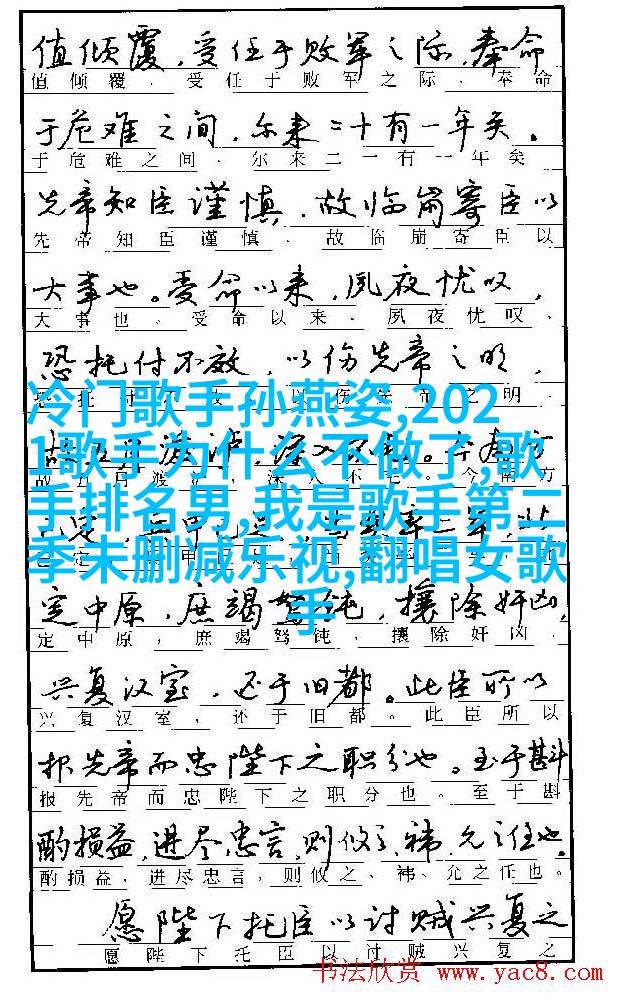 值倾覆，受任于败军之际，奉命
值倾覆，受任于败军之际，奉命
于危难之间，尔来二十有一年矣。
于危难之间，尔来二十有一年矣
先帝知臣谨慎，故临崩寄臣以
先帝知臣谨慎，故临崩寄臣以
大事也。受命以来，夙夜忧叹，
大事也。受命以来，夙夜忧叹，
恐托付不效，以伤先帝之明，
冷门歌手孙燕姿,202
1歌手为什么不做了,歌
手排名男,我是歌手第二
季未删减乐视,翻唱女歌
手
定中原，庶竭驽钝，攘除奸凶，
定中原，庶竭驽钝，攘除奸凶，
兴复汉室，还于旧都。此臣所以
兴复汉室，还于旧都。此臣所以
报先帝而忠陛下之职分也。至于斟
报先帝而忠陛下之职分也。至于斟
酌损益，进尽忠言，则攸之、祎、允之任也。
酌损益，进尽忠言，则攸之、祎、允之任也。
愿陛下托臣以讨贼兴复之
愿陛下托臣以讨贼兴复之
书法欣赏 www.yac8.com